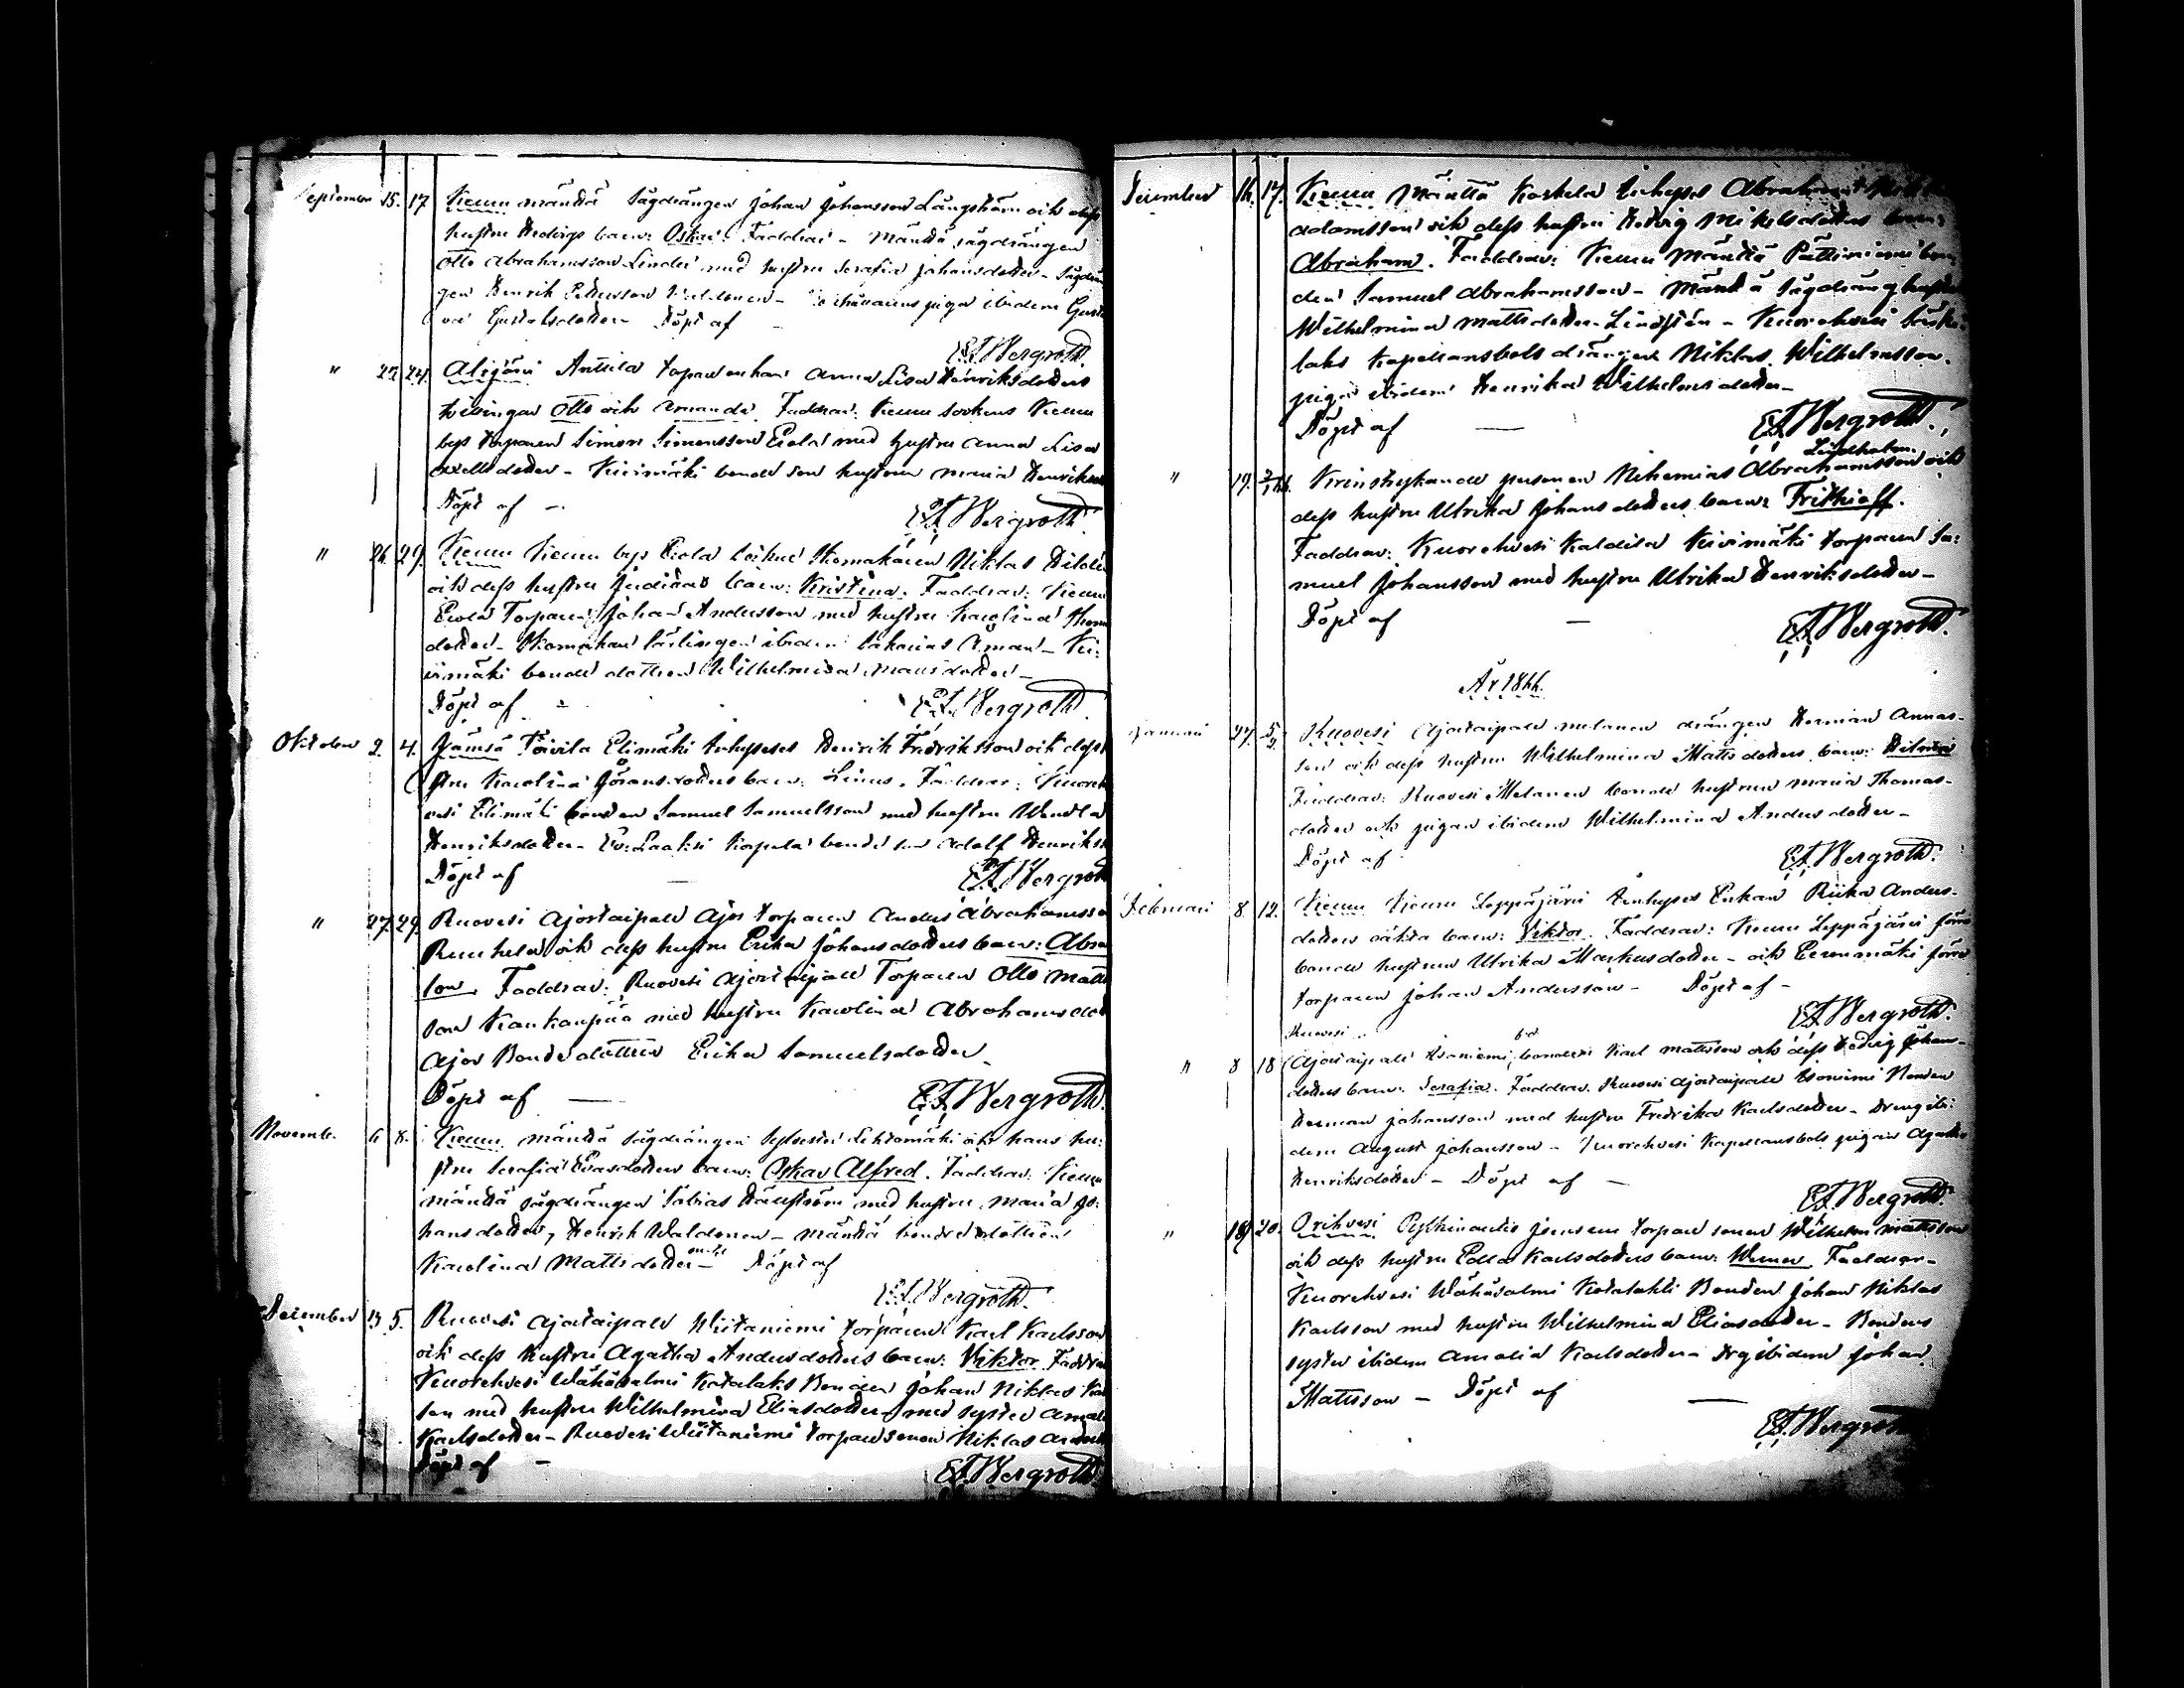 September 15. 17 Keuru mänttä Sågdrängen Johan Johansson Långström och dess
hustru Hedvigs barn: Oskar. Faddrar – Mänttä sågdrängen
Otto Abrahamsson Linder med hustru Serafia Johansdotter – Sågdrän
gen Henrik Pettersson Waldonen – pigan ibidem Gusta
va Gustafsdotter Döpt af –
E.A. Bergroth.
" 22. 24. Alijärvi Anttila Torparenkan Anna Lisa Henriksdotters
tvillingar Otto och Amanda. Faddrar: Keuru Sockens Keuru
bys torparen Simon Simonsson Eerola med hustru Anna Lisa
dotter – Kivimäki bonde son hustrun Maria Henriks
Döpt af –
E.A. Bergroth.
" 26. 29. Keuru Keuru bys Eerola Skomakaren Niklas
och dess hustru barn: Kristina. Faddrar: Keuru
Eerola Torparen Johan Andersson med hustru Karolina Thom
dotter – Skomakare lärlingen ibidem Zakarias Åman – Ki:
vimäki bonde dottren Wilhelmina Mattsdotter –
Döpt af –
E.A. Bergroth.
Oktober 2. 4. Jämsä Toivila Elimäki Inhyseses Henrik Fredriksson och dess
stru Karolina Göransdotters barn: Linus. Faddrar: Kuoreh
vesi Elimäki bonden Samuel Samuelsson med hustru Wendla
Henriksdotter – Karpela bonde son Adolf Henriks
Döpt af –
E.A. Bergroth
" 27. 29. Ruovesi Ajostaipale Ajos torparen Anders Abrahamsso
Ruuhela och dess hustru Erika Johansdotters barn: Absa
lon. Faddrar: Ruovesi Ajostaipale Torparen Otto Matts
son Kaukanpää med hustru Karolina Abrahamsdot
Ajos Bonde dottren Erika Samuelsdotter
Döpt af –
E.A. Bergroth.
Novemb. 6 8. Keuru mänttä sågdrängen Sylvester Lehtomäki och hans hu:
stru Serafia Evasdotters barn: Oskar Alfred. Faddrar: Keuru
mänttä sågdrängen Tobias Hällström med hustru Maria Jo:
hansdotter, Henrik Waldonen – mänttä bonde dottren
Karolina Mattsdotter – Döpt af
E.A. Bergroth.
December 3 5. Ruovesi Ajostaipale Wiitaniemi torparen Karl Karlsson
och dess hustru Agatha Andersdotters barn: Viktor. Faddrar
Kuorehvesi Wähäsalmi Katalaks Bonden Johan Niklas Karl
son med hustru Wilhelmina Eliasdotter – med syster Amali
Karlsdotter – Ruovesi Wiitaniemi torparsonen Niklas Anders
Döpt af –
E.A. Bergroth
December 16. 17. Keuru Mänttä Koskela Inhyses Abraham
Adamsson och dess hustru Hedvig Mikelsdotters barn:
Abraham. Faddrar: Keuru Mänttä Pättiniemi bon
den Samuel Abrahamsson – Mänttä Sågdräng hustru
Wilhelmina Mattsdotter Lindstén – Kuorehvesi
laks Kapellansbols drängen Niklas Wilhelmsson.
pigan ibidem Henrika Wilhelmsdotter –
Döpt af –
E.A. Bergroth.
Lindholm.
" 19. Kringstrykande personen Nehemias Abrahamsson och
dess hustru Ulrika Johansdotters barn: Frithioff.
Faddrar: Kuorehvesi Kaldila Kivimäki torparen Sa:
muel Johansson med hustru Ulrika Henriksdotter –
Döpt af –
E.A. Bergroth.
År 1866.
Januari 27. 5/2. Ruovesi Ajostaipale Melanen drängen Herman Annas-
son och dess hustru Wilhelmina Mattsdotters barn:
Faddrar: Ruovesi Melanen bonde hustrun Maria Thomas-
dotter och pigan ibidem Wilhelmina Andersdotter –
Döpt af
E.A. Bergroth.
Februari 8 12. Keuru Keuru Leppäjärvi Inhyses Enkan Riika Anders-
dotters oäkta barn: Viktor. Faddrar: Keuru Leppäjärvi förre
bonde hustrun Ulrika Markusdotter – och Eerenmäki förre
torparen Johan Andersson – Döpt af –
E.A. Bergroth.
Ruovesi
" 8 18 Ajostaipale Isoniemi bonden Karl Mattsson och dess Hedvig Johans-
dotters barn: Serafia. Faddrar. Ruovesi Ajostaipale Isoniemi Bonden
Herman Johansson med hustru Fredrika Karlsdotter – Dreng ibi:
dem August Johansson – Kuorehvesi Kapellansbols pigan Agatha
Henriksdotter – Döpt af –
E.A. Bergroth.
" 18 20. Orihvesi Pylkinaukio torpare sonen Wilhelm Mattsson
och dess hustru Edla Karlsdotters barn: Werner. Faddrar –
Kuorehvesi Wähäsalmi Katalahti Bonden Johan Niklas
Karlsson med hustru Wilhelmina Eliasdotter – Bondens
syster ibidem Amalia Karlsdotter – Drg ibidem Johan
Mattsson – Döpt af –
E.A. Bergroth